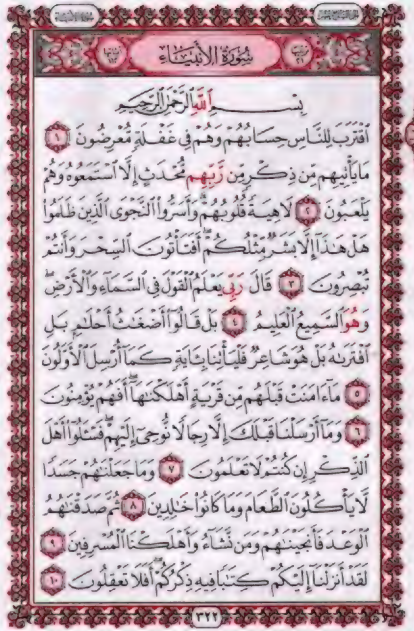 سُورَةُ الأَنبِيَاءِ
بِسْمِ اللَّهِ الرَّحْمَٰنِ الرَّحِيمِ
ٱقْتَرَبَ لِلنَّاسِ حِسَابُهُمْ وَهُمْ فِى غَفْلَةٍ مُّعْرِضُونَ ١
مَا يَأْتِيهِم مِّن ذِكْرٍ مِّن رَّبِّهِم مُّحْدَثٍ إِلَّا ٱسْتَمَعُوهُ وَهُمْ
يَلْعَبُونَ ٢ لَاهِيَةً قُلُوبُهُمْ وَأَسَرُّوا۟ ٱلنَّجْوَى ٱلَّذِينَ ظَلَمُوا۟
هَلْ هَٰذَآ إِلَّا بَشَرٌ مِّثْلُكُمْ أَفَتَأْتُونَ ٱلسِّحْرَ وَأَنتُمْ
تُبْصِرُونَ ٣ قَالَ رَبِّى يَعْلَمُ ٱلْقَوْلَ فِى ٱلسَّمَآءِ وَٱلْأَرْضِ
وَهُوَ ٱلسَّمِيعُ ٱلْعَلِيمُ ٤ بَلْ قَالُوٓا۟ أَضْغَٰثُ أَحْلَٰمٍۭ بَلِ
ٱفْتَرَىٰهُ بَلْ هُوَ شَاعِرٌ فَلْيَأْتِنَا بِـَٔايَةٍ كَمَآ أُرْسِلَ ٱلْأَوَّلُونَ
٥ مَآ ءَامَنَتْ قَبْلَهُم مِّن قَرْيَةٍ أَهْلَكْنَٰهَآ أَفَهُمْ يُؤْمِنُونَ
٦ وَمَآ أَرْسَلْنَا قَبْلَكَ إِلَّا رِجَالًا نُّوحِىٓ إِلَيْهِمْ فَسْـَٔلُوٓا۟ أَهْلَ
ٱلذِّكْرِ إِن كُنتُمْ لَا تَعْلَمُونَ ٧ وَمَا جَعَلْنَٰهُمْ جَسَدًا
لَّا يَأْكُلُونَ ٱلطَّعَامَ وَمَا كَانُوا۟ خَٰلِدِينَ ٨ ثُمَّ صَدَقْنَٰهُمُ
ٱلْوَعْدَ فَأَنجَيْنَٰهُمْ وَمَن نَّشَآءُ وَأَهْلَكْنَا ٱلْمُسْرِفِينَ ٩
لَقَدْ أَنزَلْنَآ إِلَيْكُمْ كِتَٰبًا فِيهِ ذِكْرُكُمْ أَفَلَا تَعْقِلُونَ ١٠
٣٢٢